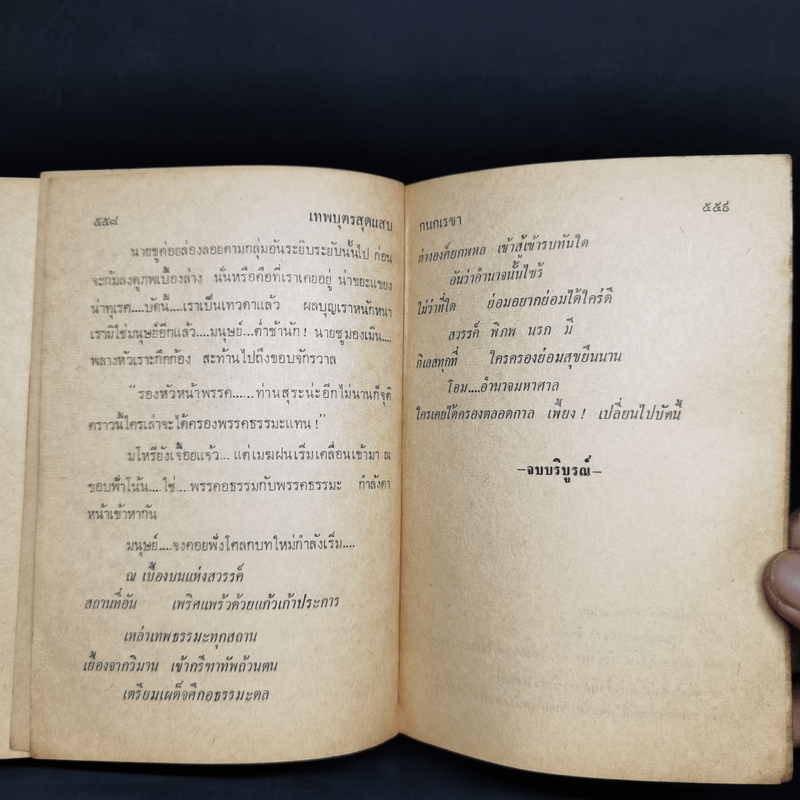 ๕๕๘ เทพบุตรสุดแสบ
นายชูค่อยล่องลอยตามกลุ่มอันระยิบระยับนั้นไป ก่อน
จะก้มลงดูภพเบื้องล่าง นั่นหรือคือที่เราเคยอยู่ น่าขยะแขยง
น่าทุเรศ....บัดนี้....เราเป็นเทวดาแล้ว ผลบุญเราหนักหนา
เรามิใช่มนุษย์อีกแล้ว....มนุษย์...ต่ำช้านัก! นายชูมองเมิน....
พลางหัวเราะกึกก้อง สะท้านไปถึงขอบจักรวาล
“รองหัวหน้าพรรค......ท่านสุระน่ะอีกไม่นานก็จุติ
คราวนี้ใครเล่าจะได้ครองพรรคธรรมะแทน!”
มโหรียังเจื้อยแจ้ว... แต่เมฆฝนเริ่มเคลื่อนเข้ามา ณ
ขอบฟ้าโน้น....ใช่....พรรคอธรรมกับพรรคธรรมะ กำลังดา
หน้าเข้าหากัน
มนุษย์....จงคอยฟังโศลกบทใหม่กำลังเริ่ม....
ณ เบื้องบนแห่งสวรรค์
สถานที่อัน เพริศแพร้วด้วยแก้วเก้าประการ
เหล่าเทพธรรมะทุกสถาน
เยื้องจากวิมาน เข้ากรีฑาทัพถ้วนตน
เตรียมเผด็จศึกอธรรมะดล
กนกเรขา ๕๕๙
ต่างองค์ยกพหล เข้าสู้เข้ารบทันใด
อันว่าอำนาจนั้นไซร้
ไม่ว่าที่ใด ย่อมอยากย่อมได้ใคร่ดี
สวรรค์ พิภพ นรก มี
กิเลสทุกที่ ใครครองย่อมสุขยืนนาน
โอม....อำนาจมหาศาล
ใครเคยได้ครองตลอดกาล เพี้ยง! เปลี่ยนไปบัดนี้
–จบบริบูรณ์–